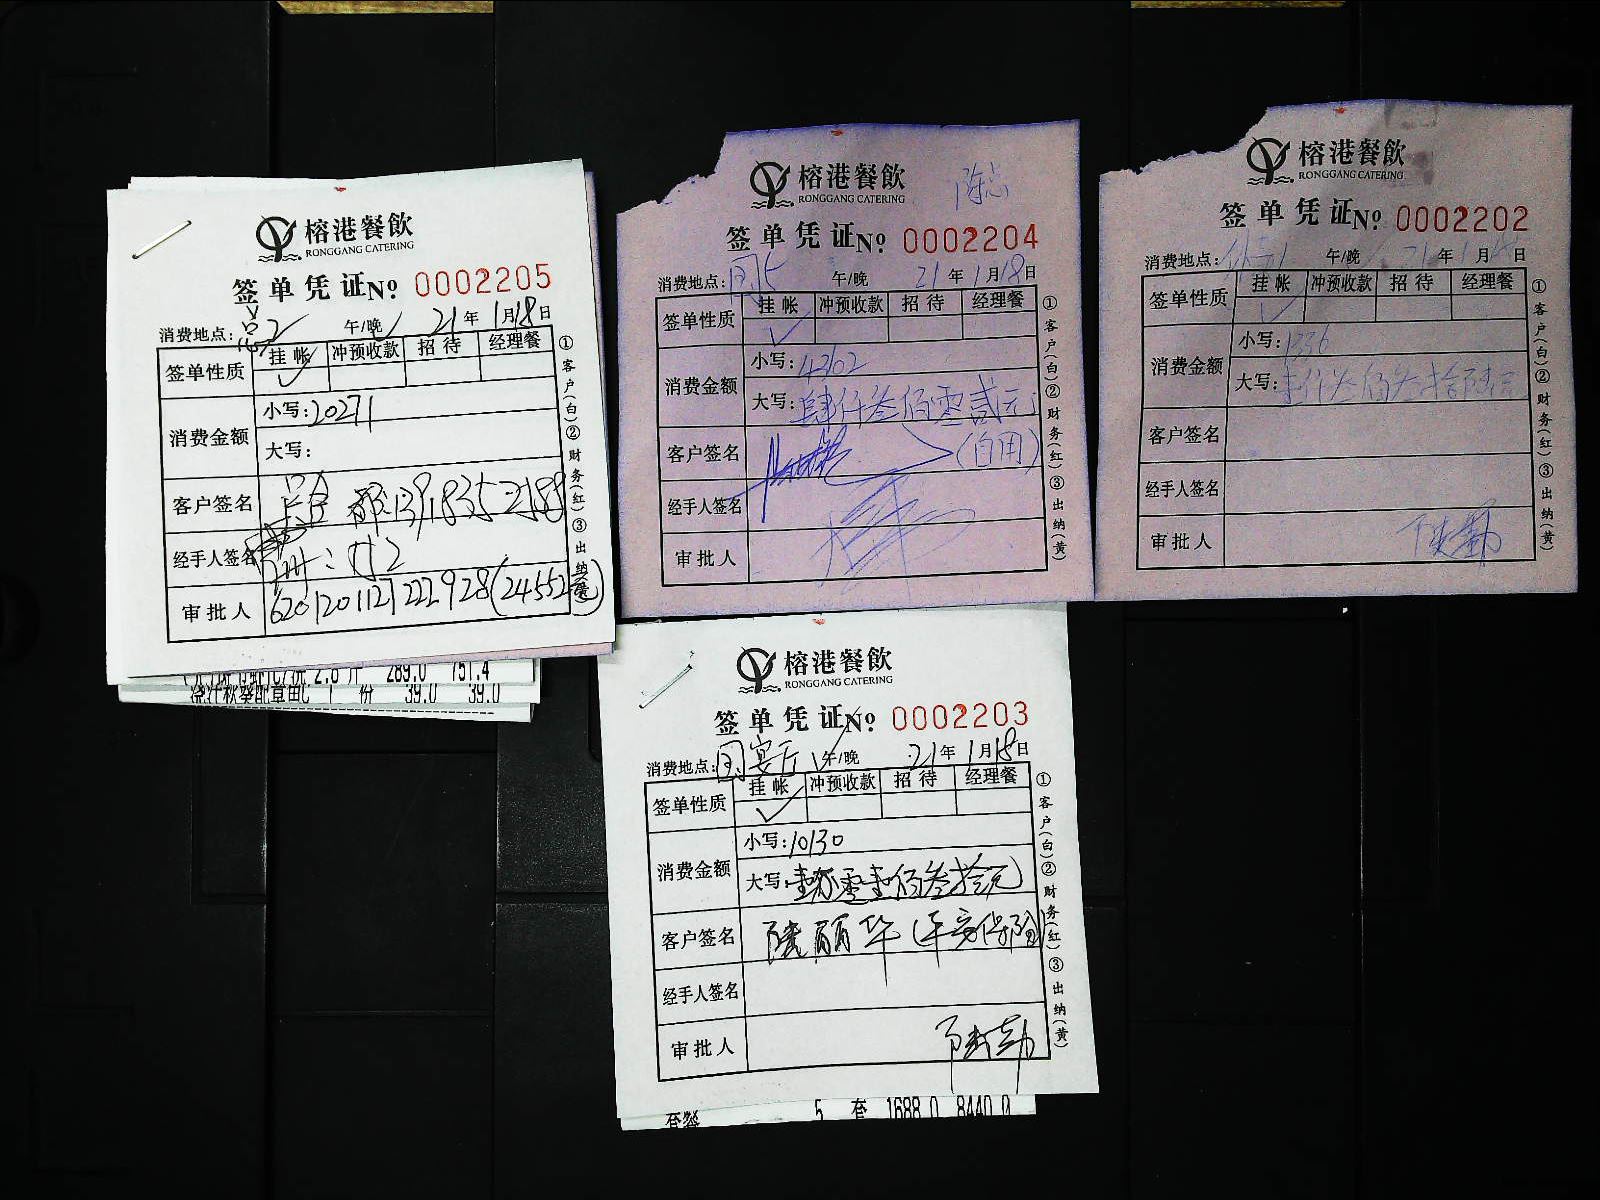 榕港餐飲
RONGGANG CATERING
签单凭证№ 0002205
消费地点: 午/晚 21年1月18日
签单性质 挂帐 冲预收款 招待 经理餐
消费金额 小写:20271
大写:
客户签名
经手人签名
审批人
①客户(白)②财务(红)③出纳(黄)
2.6 斤 289.0 751.4
份 39.0 39.0
榕港餐飲
RONGGANG CATERING
签单凭证№ 0002204
消费地点: 午/晚 21年1月18日
签单性质 挂帐 冲预收款 招待 经理餐
消费金额 小写:4302
大写:肆仟叁佰零贰元
客户签名 (自用)
经手人签名
审批人
①客户(白)②财务(红)③出纳(黄)
榕港餐飲
RONGGANG CATERING
签单凭证№ 0002202
消费地点: 午/晚 21年1月18日
签单性质 挂帐 冲预收款 招待 经理餐
消费金额 小写:1336
大写:壹仟叁佰叁拾陆元
客户签名
经手人签名
审批人
①客户(白)②财务(红)③出纳(黄)
榕港餐飲
RONGGANG CATERING
签单凭证№ 0002203
消费地点: 午/晚 21年1月18日
签单性质 挂帐 冲预收款 招待 经理餐
消费金额 小写:10130
大写:壹万零壹佰叁拾元
客户签名 陆丽华(平安保险)
经手人签名
审批人
①客户(白)②财务(红)③出纳(黄)
套餐 5 套 1688.0 8440.0